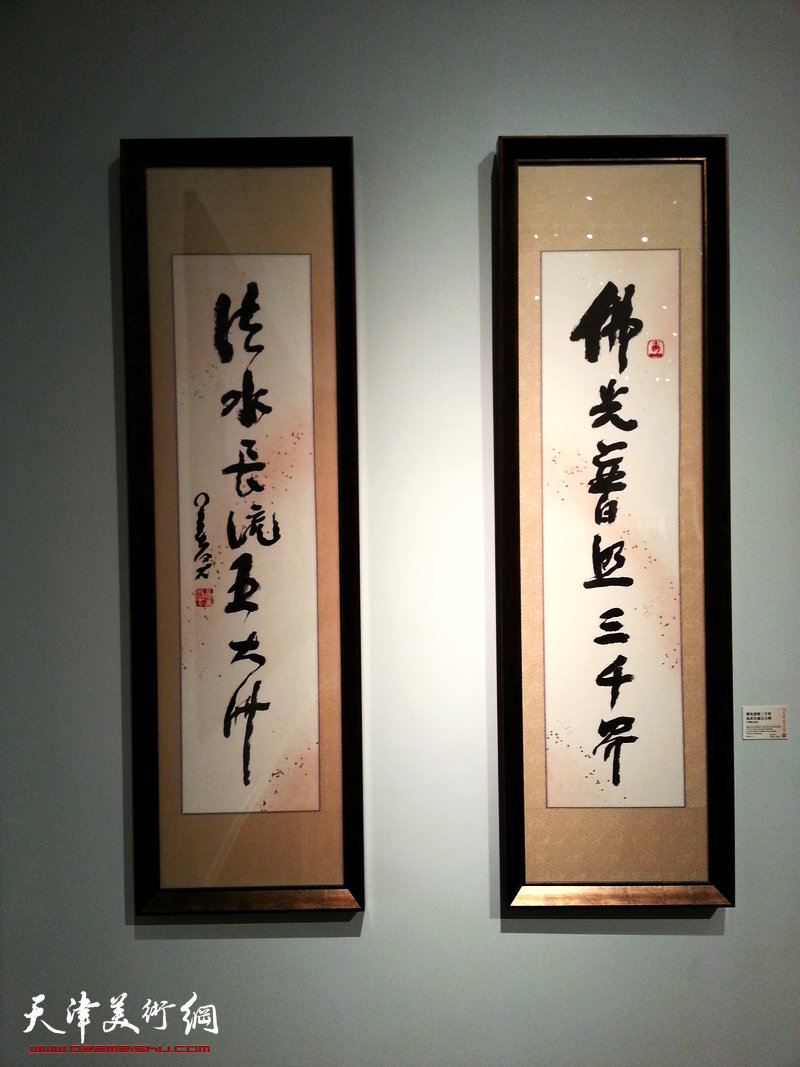 佛光普照三千界
法水長流五大洲
天津美術網
www.022meishu.com